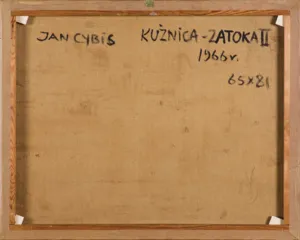 JAN CYBIS KUŹNICA-ZATOKA II
1966r.
65x81